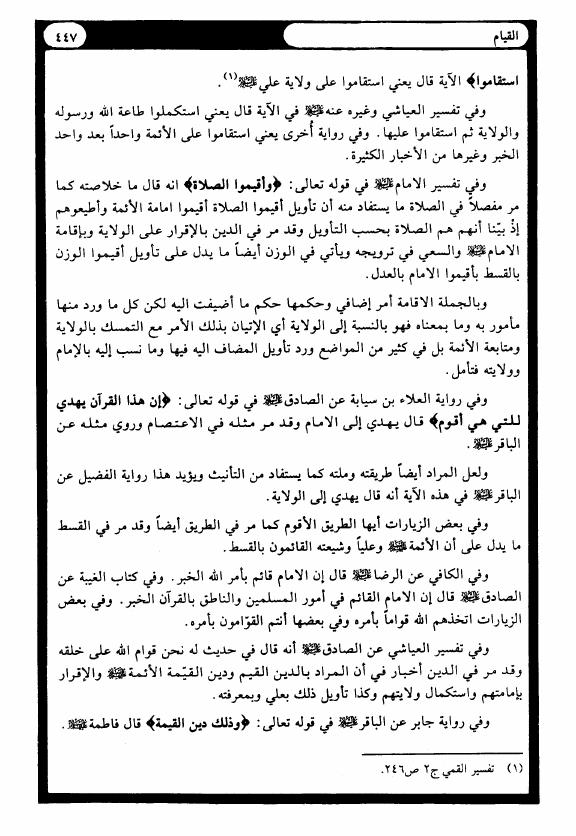 القيام
٤٤٧
استقاموا﴾ الآية قال يعني استقاموا على ولاية علي عليه السلام(١).
وفي تفسير العياشي وغيره عنه عليه السلام في الآية قال يعني استكملوا طاعة الله ورسوله
والولاية ثم استقاموا عليها. وفي رواية أُخرى يعني استقاموا على الأئمة واحداً بعد واحد
الخبر وغيرها من الأخبار الكثيرة.
وفي تفسير الامام عليه السلام في قوله تعالى: ﴿وأقيموا الصلاة﴾ انه قال ما خلاصته كما
مر مفصلاً في الصلاة ما يستفاد منه أن تأويل أقيموا الصلاة أقيموا امامة الأئمة وأطيعوهم
إذْ بيّنا أنهم هم الصلاة بحسب التأويل وقد مر في الدين بالإقرار على الولاية وبإقامة
الامام عليه السلام والسعي في ترويجه ويأتي في الوزن أيضاً ما يدل على تأويل أقيموا الوزن
بالقسط بأقيموا الامام بالعدل.
وبالجملة الاقامة أمر إضافي وحكمها حكم ما أضيفت اليه لكن كل ما ورد منها
مأمور به وما بمعناه فهو بالنسبة إلى الولاية أي الإتيان بذلك الأمر مع التمسك بالولاية
ومتابعة الأئمة بل في كثير من المواضع ورد تأويل المضاف اليه فيها وما نسب إليه بالإمام
وولايته فتأمل.
وفي رواية العلاء بن سيابة عن الصادق عليه السلام في قوله تعالى: ﴿إن هذا القرآن يهدي
للتي هي أقوم﴾ قال يهدي إلى الامام وقد مر مثله في الاعتصام وروي مثله عن
الباقر عليه السلام.
ولعل المراد أيضاً طريقته وملته كما يستفاد من التأنيث ويؤيد هذا رواية الفضيل عن
الباقر عليه السلام في هذه الآية أنه قال يهدي إلى الولاية.
وفي بعض الزيارات أيها الطريق الأقوم كما مر في الطريق أيضاً وقد مر في القسط
ما يدل على أن الأئمة عليهم السلام وعلياً وشيعته القائمون بالقسط.
وفي الكافي عن الرضا عليه السلام قال إن الامام قائم بأمر الله الخبر. وفي كتاب الغيبة عن
الصادق عليه السلام قال إن الامام القائم في أمور المسلمين والناطق بالقرآن الخبر. وفي بعض
الزيارات اتخذهم الله قواماً بأمره وفي بعضها أنتم القوّامون بأمره.
وفي تفسير العياشي عن الصادق عليه السلام أنه قال في حديث له نحن قوام الله على خلقه
وقد مر في الدين أخبار في أن المراد بالدين القيم ودين القيّمة الأئمة عليهم السلام والإقرار
بإمامتهم واستكمال ولايتهم وكذا تأويل ذلك بعلي وبمعرفته.
وفي رواية جابر عن الباقر عليه السلام في قوله تعالى: ﴿وذلك دين القيمة﴾ قال فاطمة عليها السلام.
(١) تفسير القمي ج٢ ص٢٤٦.